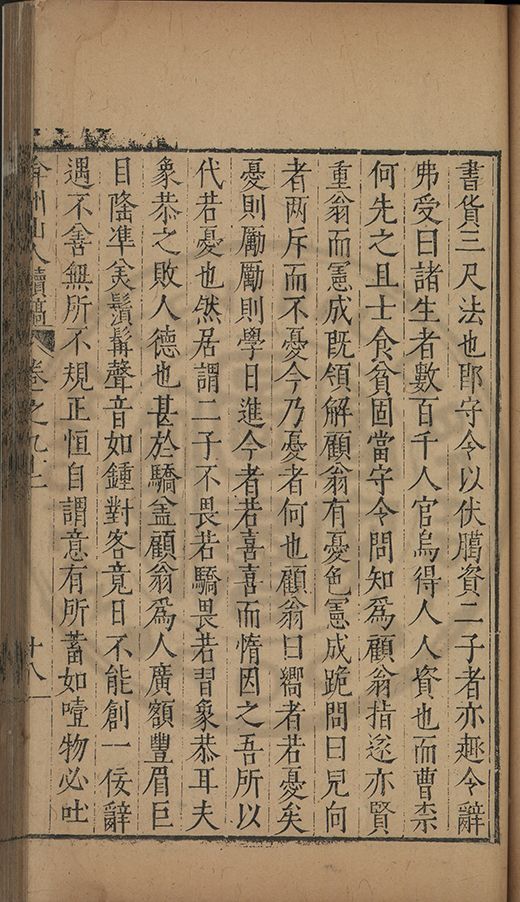 書貨三尺法也郎守令以伏臈資二子者亦趣令辭
弗受曰諸生者數百千人官烏得人人資也而曹柰
何先之且士食貧固當守令問知爲顧翁指遂亦賢
重翁而憲成旣領解顧翁有憂色憲成跪問曰兒向
者两斥而不憂今乃憂者何也顧翁曰嚮者若憂矣
憂則勵勵則學日進今者若喜喜而惰因之吾所以
代若憂也然居謂二子不畏若驕畏若習象恭耳夫
象恭之敗人德也甚於驕盖顧翁爲人廣額豐眉巨
目隆準美鬚髯聲音如鍾對客竟日不能創一佞辭
遇不善無所不規正恒自謂意有所蓄如噎物必吐
弇州山人續稿 卷之九十 十八